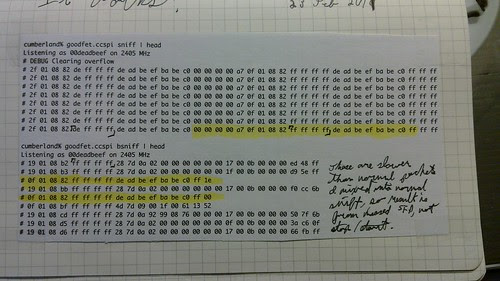 It works!
23 Feb 201
cumberland% goodfet.ccspi sniff | head
Listening as 00deadbeef on 2405 MHz
# DEBUG Clearing overflow
# 2f 01 08 82 de ff ff ff ff de ad be ef ba be c0 00 00 00 00 a7 0f 01 08 82 ff ff ff ff de ad be ef ba be c0 ff ff ff
# 2f 01 08 82 de ff ff ff ff de ad be ef ba be c0 00 00 00 00 a7 0f 01 08 82 ff ff ff ff de ad be ef ba be c0 ff ff ff
# 2f 01 08 82 de ff ff ff ff de ad be ef ba be c0 00 00 00 00 a7 0f 01 08 82 ff ff ff ff de ad be ef ba be c0 ff ff ff
# 2f 01 08 82 de ff ff ff ff de ad be ef ba be c0 00 00 00 00 a7 0f 01 08 82 ff ff ff ff de ad be ef ba be c0 ff ff ff
# 2f 01 08 82 de ff ff ff ff de ad be ef ba be c0 00 00 00 00 a7 0f 01 08 82 ff ff ff ff de ad be ef ba be c0 ff ff ff
# 2f 01 08 82 de ff ff ff ff de ad be ef ba be c0 00 00 00 00 a7 0f 01 08 82 ff ff ff ff de ad be ef ba be c0 ff ff ff
# 2f 01 08 82 de ff ff ff ff de ad be ef ba be c0 00 00 00 00 a7 0f 01 08 82 ff ff ff ff de ad be ef ba be c0 ff ff ff
cumberland% goodfet.ccspi bsniff | head
Listening as 00deadbeef on 2405 MHz
# 19 01 08 b2 ff ff ff ff 28 7d 0a 02 00 00 00 00 00 17 00 0b 00 00 00 ed 48 ff
# 19 01 08 b3 ff ff ff ff 28 7d 0a 02 00 00 00 00 00 1f 00 0b 00 00 00 d9 5e ff
# 0f 01 08 82 ff ff ff ff de ad be ef ba be c0 ff 1e
# 19 01 08 bb ff ff ff ff 28 7d 0a 02 00 00 00 00 00 17 00 0b 00 00 00 f0 cc 6b
# 0f 01 08 82 ff ff ff ff de ad be ef ba be c0 ff 00
# 0f 01 08 bf ff ff ff ff 4d 7d 09 00 1f 00 61 13 52
# 19 01 08 cd ff ff ff ff 28 7d 0a 92 99 08 76 00 00 17 00 0b 00 00 00 50 7f 6b
# 19 01 08 d5 ff ff ff ff 28 7d 0a 02 00 00 00 00 00 0f 00 0b 00 00 00 3a c6 0f
# 19 01 08 d6 ff ff ff ff 28 7d 0a 02 00 00 00 00 00 17 00 0b 00 00 00 66 fb ff
These are slower
than normal packets
& mixed into normal
sniff, so result is
from missed SFD, not
stop/start.